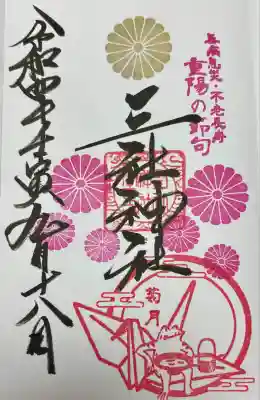 無病息災・不老長寿
重陽の節句
三社神社
令和四年壬寅九月十八日
菊月